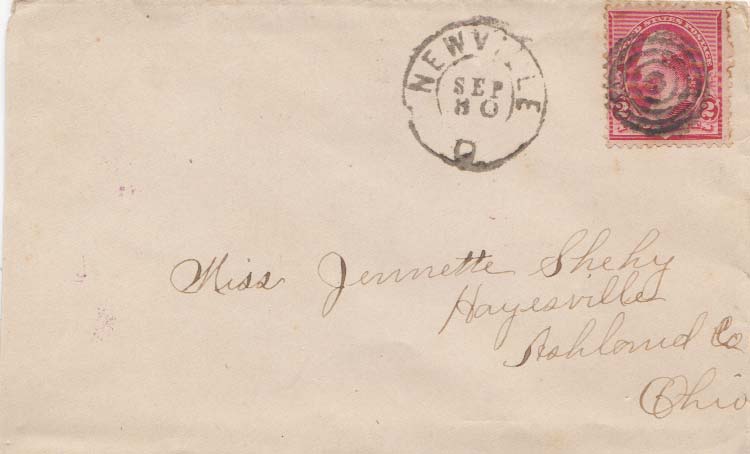 NEWVILLE
SEP
30
O.
UNITED STATES POSTAGE
2 2
Miss Jennette Shehy
Hayesville
Ashland Co
Ohio